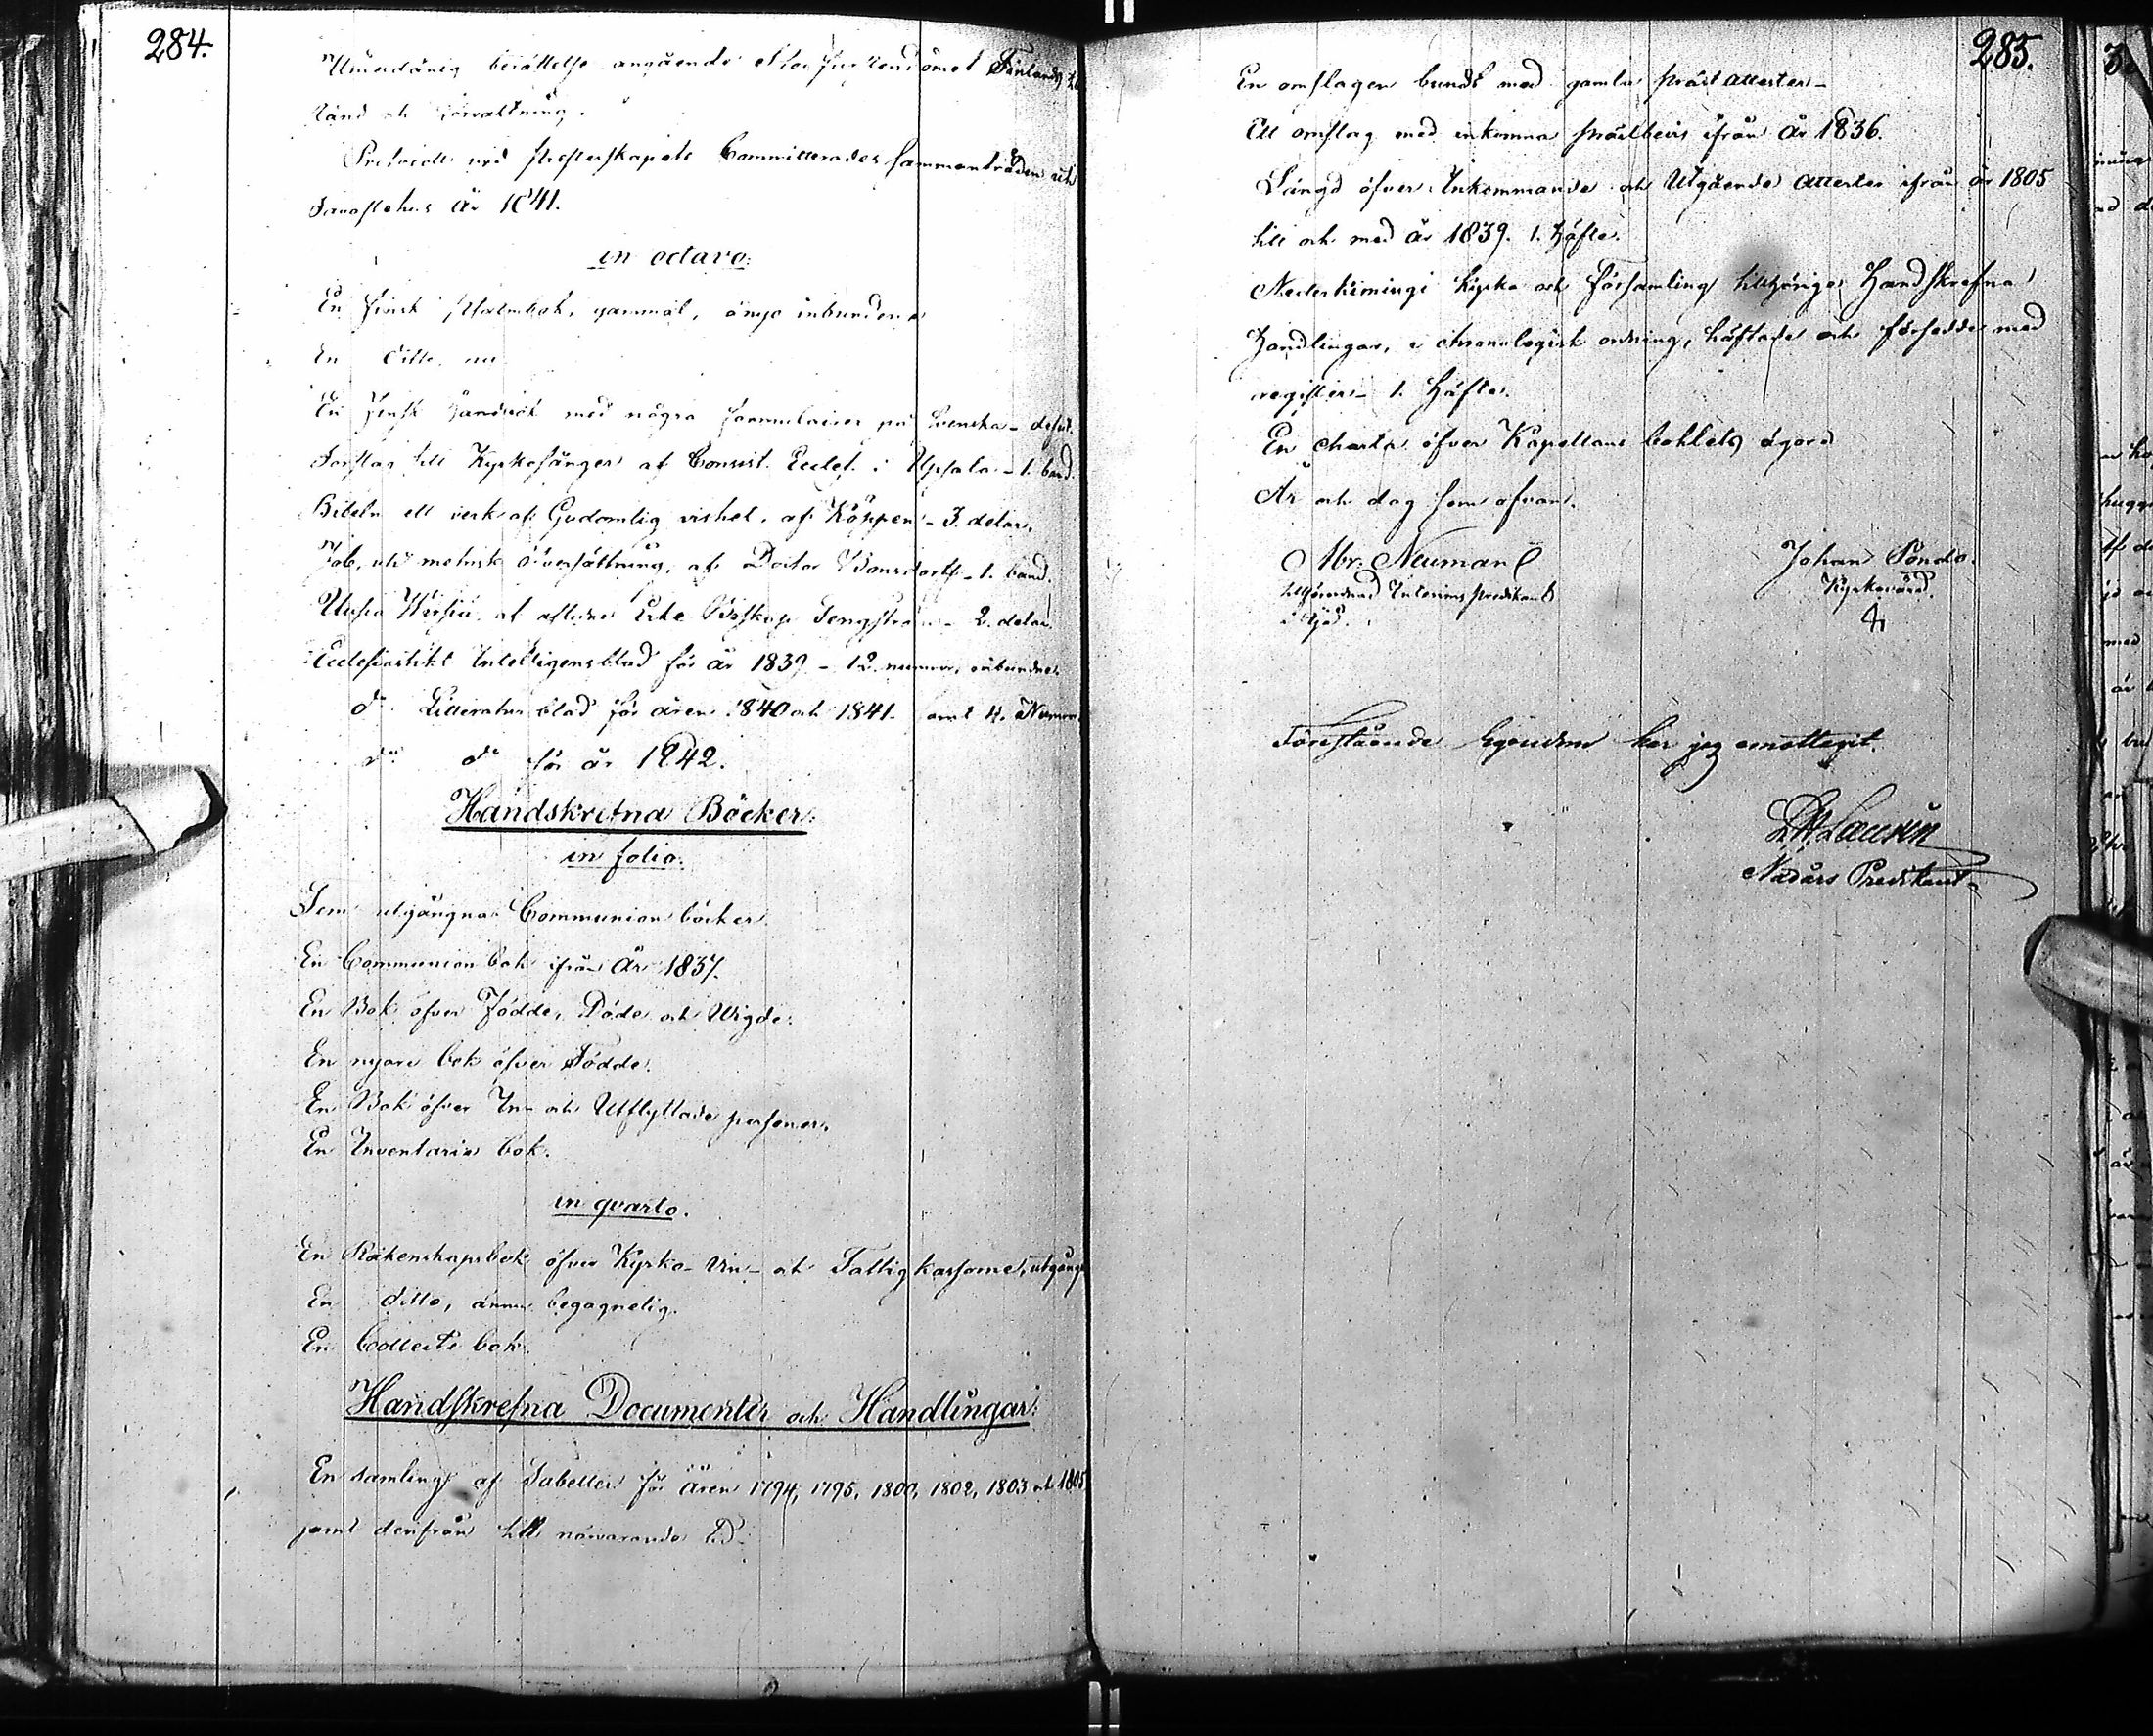 284.
Underdånig berättelse angående Storfurstendömet Finlands
stånd och förvaltning.
Protocoll vid Presterskapets Committerades sammanträden uti
Tavastehus år 1841.
in octavo:
En finsk Psalmbok, gammal, ånyo inbunden
En Ditto, ny
En finsk Handbok med några formulairer på Svenska - defect.
Förslag till Kyrkosånger af Consist. Eccles. i Upsala - 1. band.
Bibeln ett verk af Gudomlig vishet, af Köppen - 3. delar.
Job, uti metrisk öfversättning, af Doctor Bonsdorff - 1. band.
Uusia Wirsiä, af aflidne Erke Biskop Tengström - 2. delar.
Ecclesiastikt Intelligensblad för år 1839 - 12. numror, inbundne.
do Litteratur blad för åren 1840 och 1841. samt 4. Numror
do do för år 1842.
Handskrefna Böcker:
in folio:
Fem utgångna Communion böcker.
En Communion bok ifrån År 1837.
En Bok öfver Födde, Döde och Wigde.
En nyare bok öfver Födde.
En Bok öfver In- och Utflyttade personer.
En Inventarie bok.
in qvarto.
En Räkenskapsbok öfver Kyrko- Vin- och Fattigkassorne, utgången
En ditto, ännu begagnelig.
En Collects bok.
Handskrefna Documenter och Handlingar:
En samling af Tabeller för åren 1794, 1795, 1800, 1802, 1803 och 1805
samt derifrån till närvarande tid.
285.
En omslagen bundt med gamla prästattester -
Ett omslag med inkomna prästbevis ifrån år 1836.
Längd öfver Inkommande och Utgående attester ifrån år 1805
till och med år 1839. 1. Häfte.
Nederkimingi Kyrka och Församling tillhörige Handskrefna
Handlingar, i chronologisk ordning, häftade och försedde med
register - 1. Häfte.
En charta öfver Kapellans bohlets ägor
År och dag som ofvan.
Abr. Neuman
tillförordnad Interims predikant
Johan Pondo.
Kyrkovärd.
Förestående Egendom har jag emottagit.
Nådårs Predikant